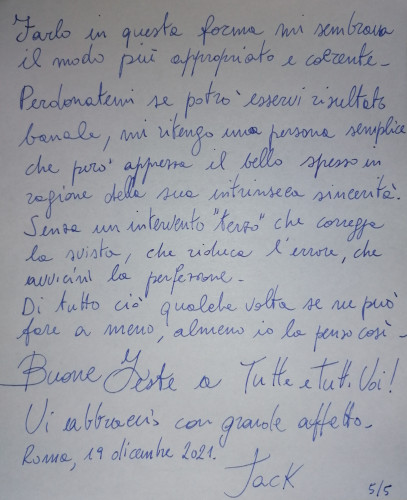 Farlo in questa forma mi sembrava
il modo più appropriato e coerente.
Perdonatemi se potrò esservi risultato
banale, mi ritengo una persona semplice
che però apprezza il bello spesso in
ragione della sua intrinseca sincerità.
Senza un intervento "terzo" che corregga
la svista, che riduca l'errore, che
avvicini la perfezione.
Di tutto ciò qualche volta se ne può
fare a meno, almeno io la penso così.
Buone Feste a Tutte e Tutti Voi!
Vi abbraccio con grande affetto.
Roma, 19 dicembre 2021.
Jack
5/5